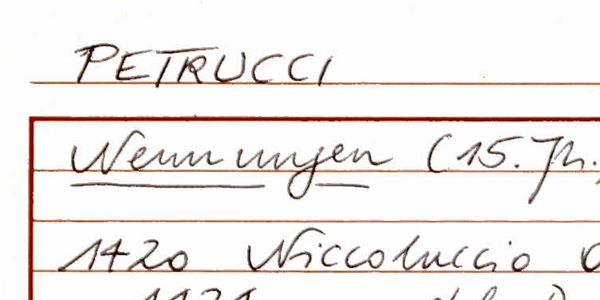 PETRUCCI
Nennungen (15. Jh.
1420 Niccoluccio
1421